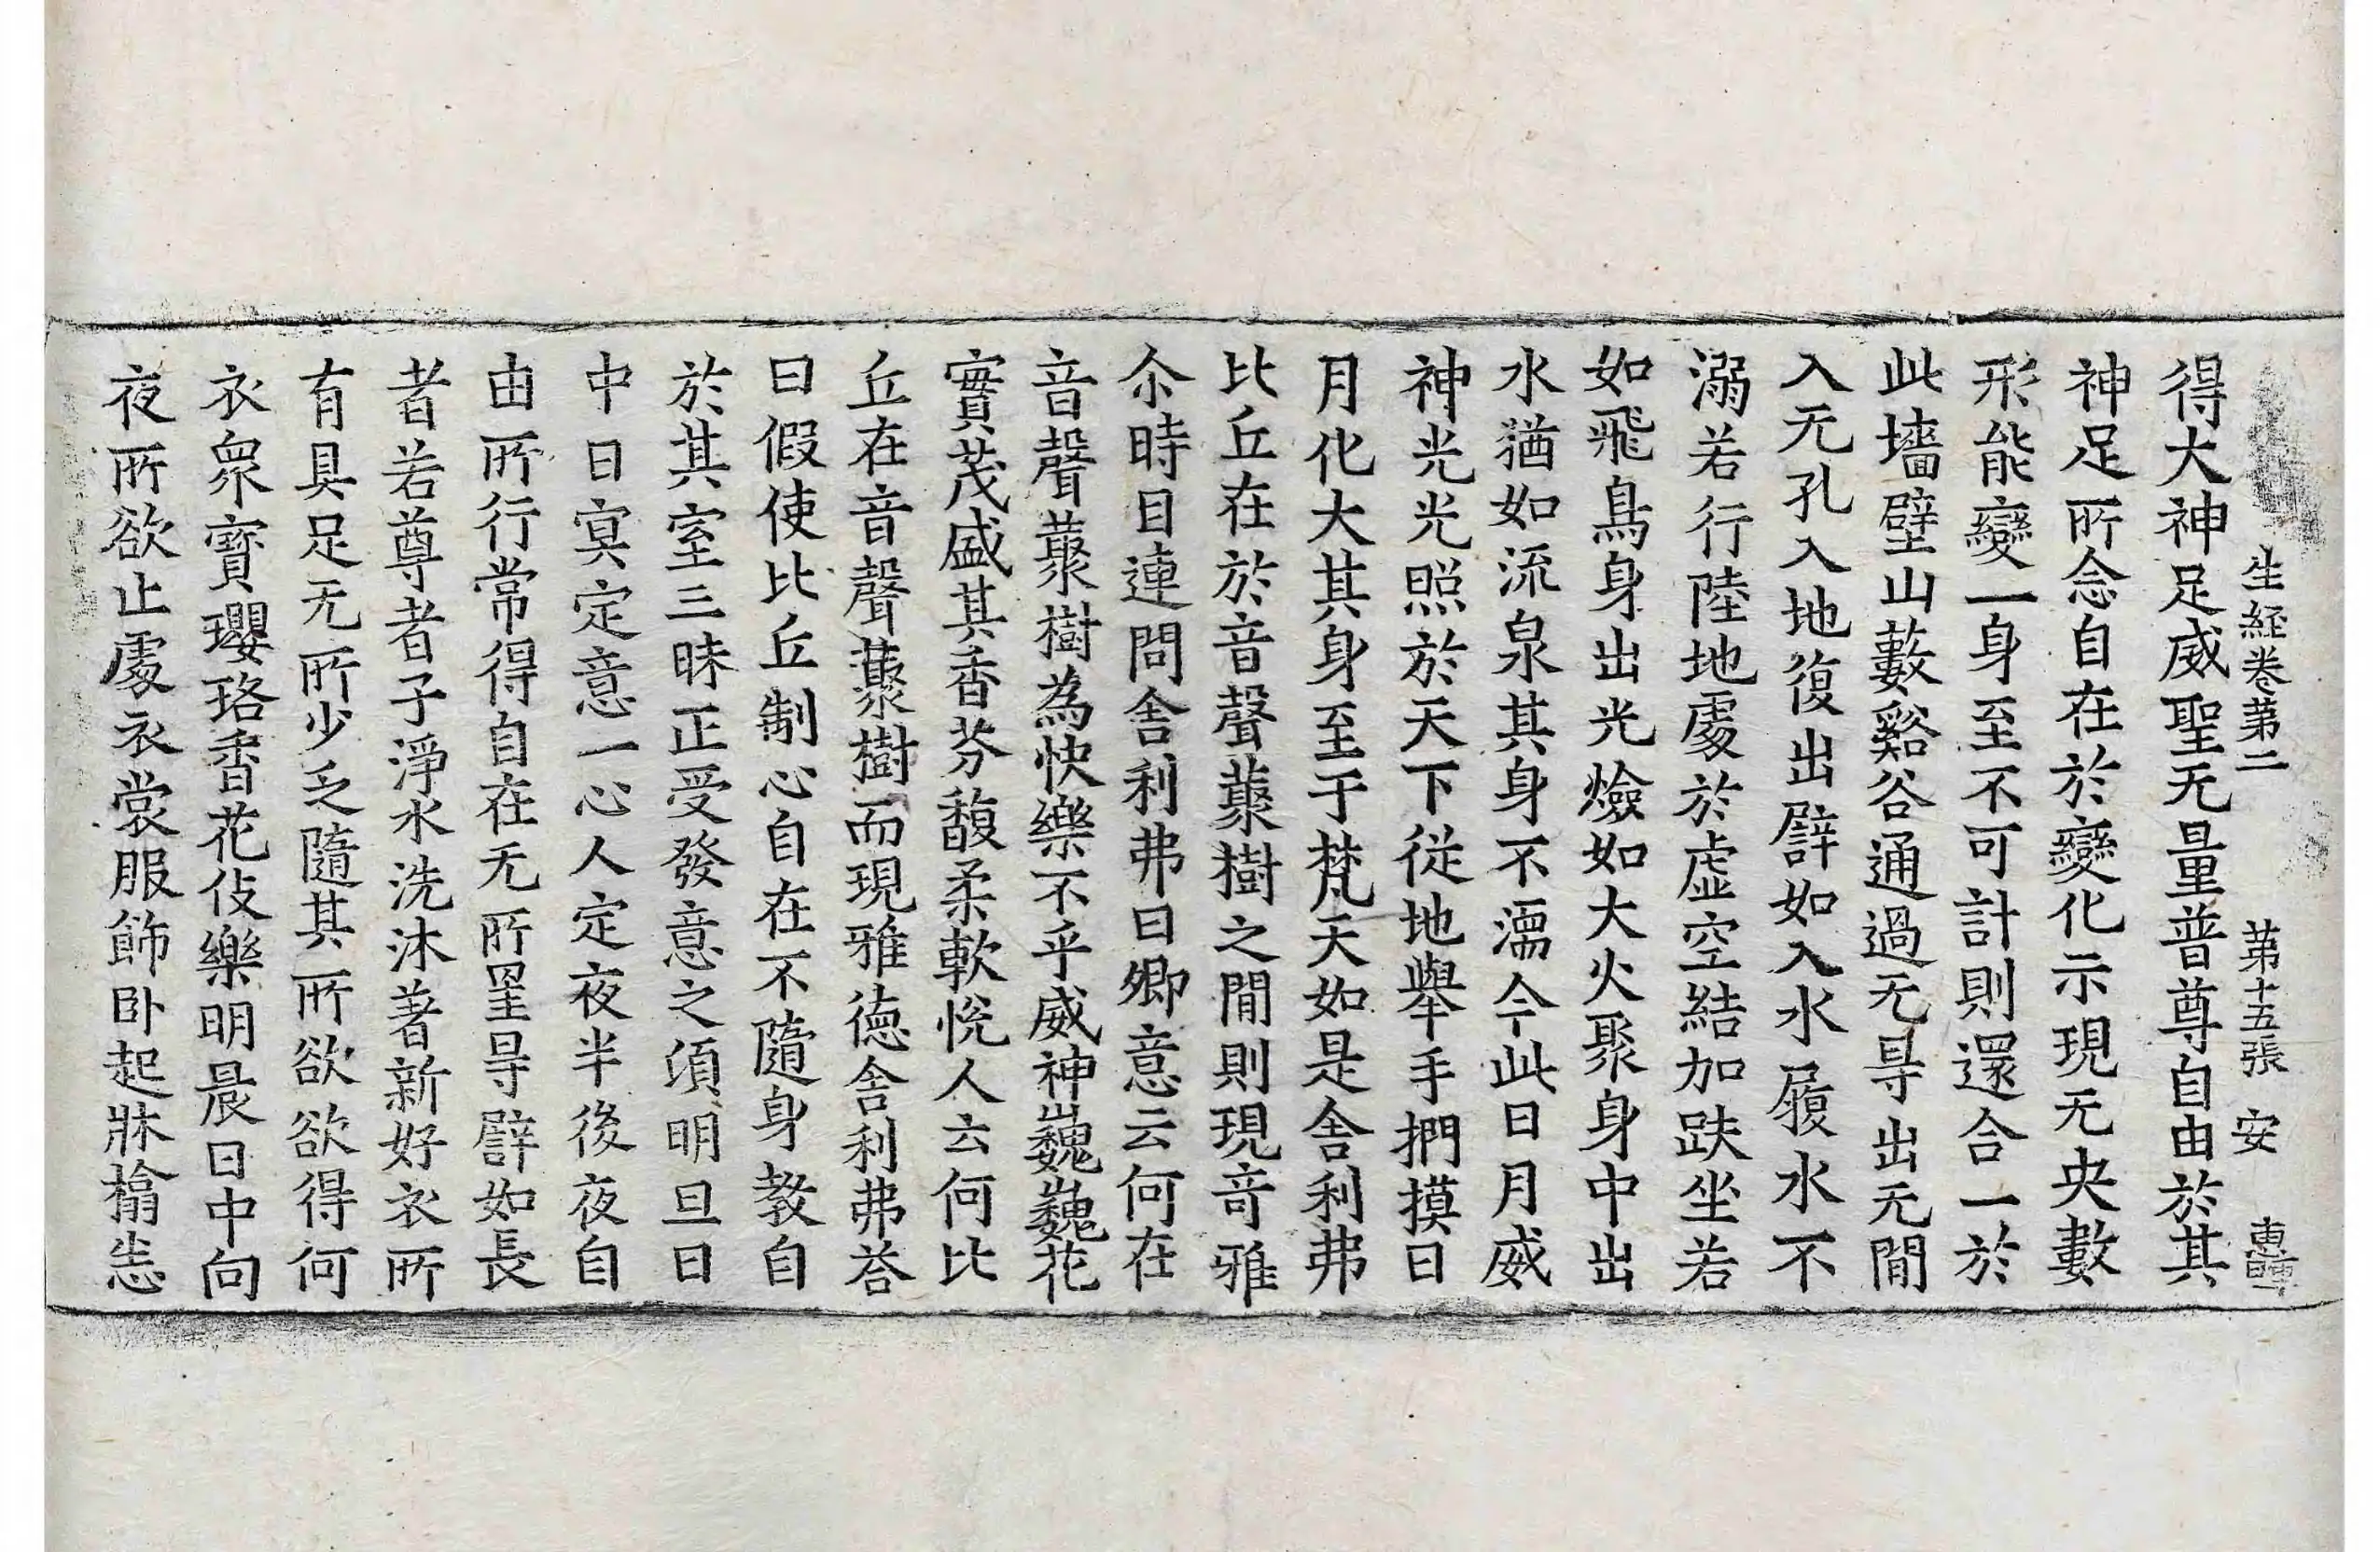 生經卷第二 第十五張 安
得大神足威聖无量普尊自由於其
神足所念自在於變化示現无央數
形能變一身至不可計則還合一於
此墻壁山藪谿谷通過无㝵出无間
入无孔入地復出譬如入水履水不
溺若行陸地處於虛空結加趺坐若
如飛鳥身出光燄如大火聚身中出
水猶如流泉其身不濡今此日月威
神光光照於天下從地舉手捫摸日
月化大其身至于梵天如是舍利弗
比丘在於音聲藂樹之間則現奇雅
尒時目連問舍利弗曰卿意云何在
音聲藂樹為快樂不乎威神巍巍花
實茂盛其香芬馥柔軟悅人云何比
丘在音聲藂樹而現雅德舍利弗荅
曰假使比丘制心自在不隨身教自
於其室三昧正受發意之須明旦日
中日冥定意一心人定夜半後夜自
由所行常得自在无所罣㝵譬如長
者若尊者子淨水洗沐著新好衣所
有具足无所少乏隨其所欲欲得何
衣眾寶瓔珞香花伎樂明晨日中向
夜所欲止處衣裳服飾卧起牀榻恣